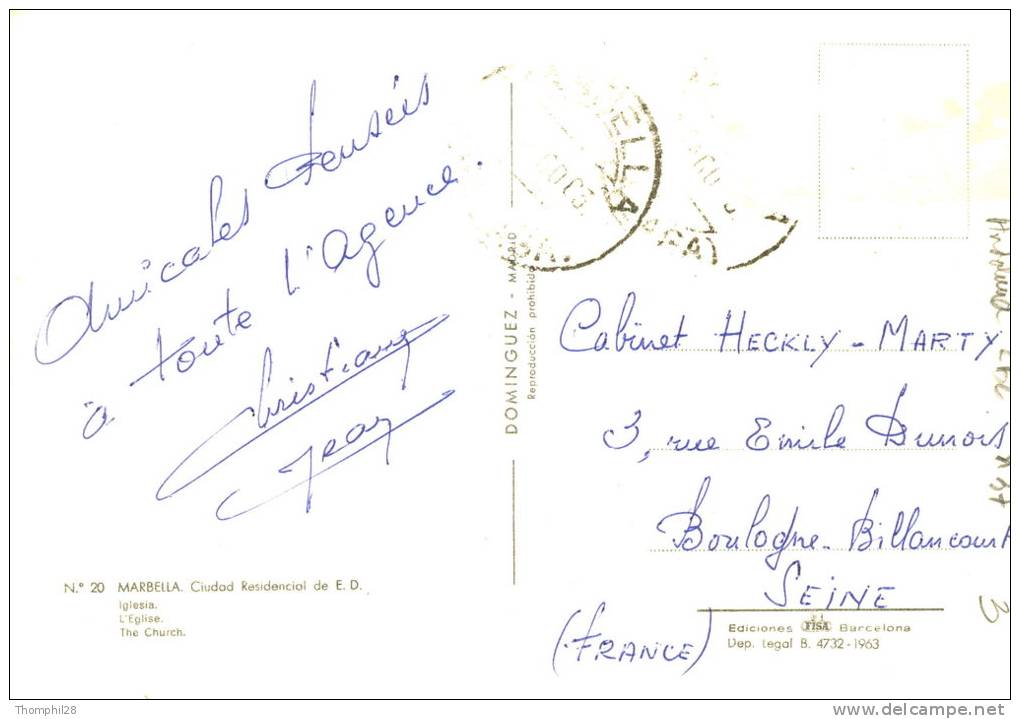 Amicales Pensées
à toute l'Agence.
Christiane
Jean
N.° 20 MARBELLA. Ciudad Residencial de E. D.
Iglesia.
L'Eglise.
The Church.
DOMINGUEZ - MADRID
Reproducción prohibida
Cabinet HECKLY-MARTY
3, rue Emile Dunois
Boulogne-Billancourt
SEINE
(FRANCE)
Ediciones FISA Barcelona
Dep. Legal B. 4732-1963
3
Thomphil28
delcampe.net